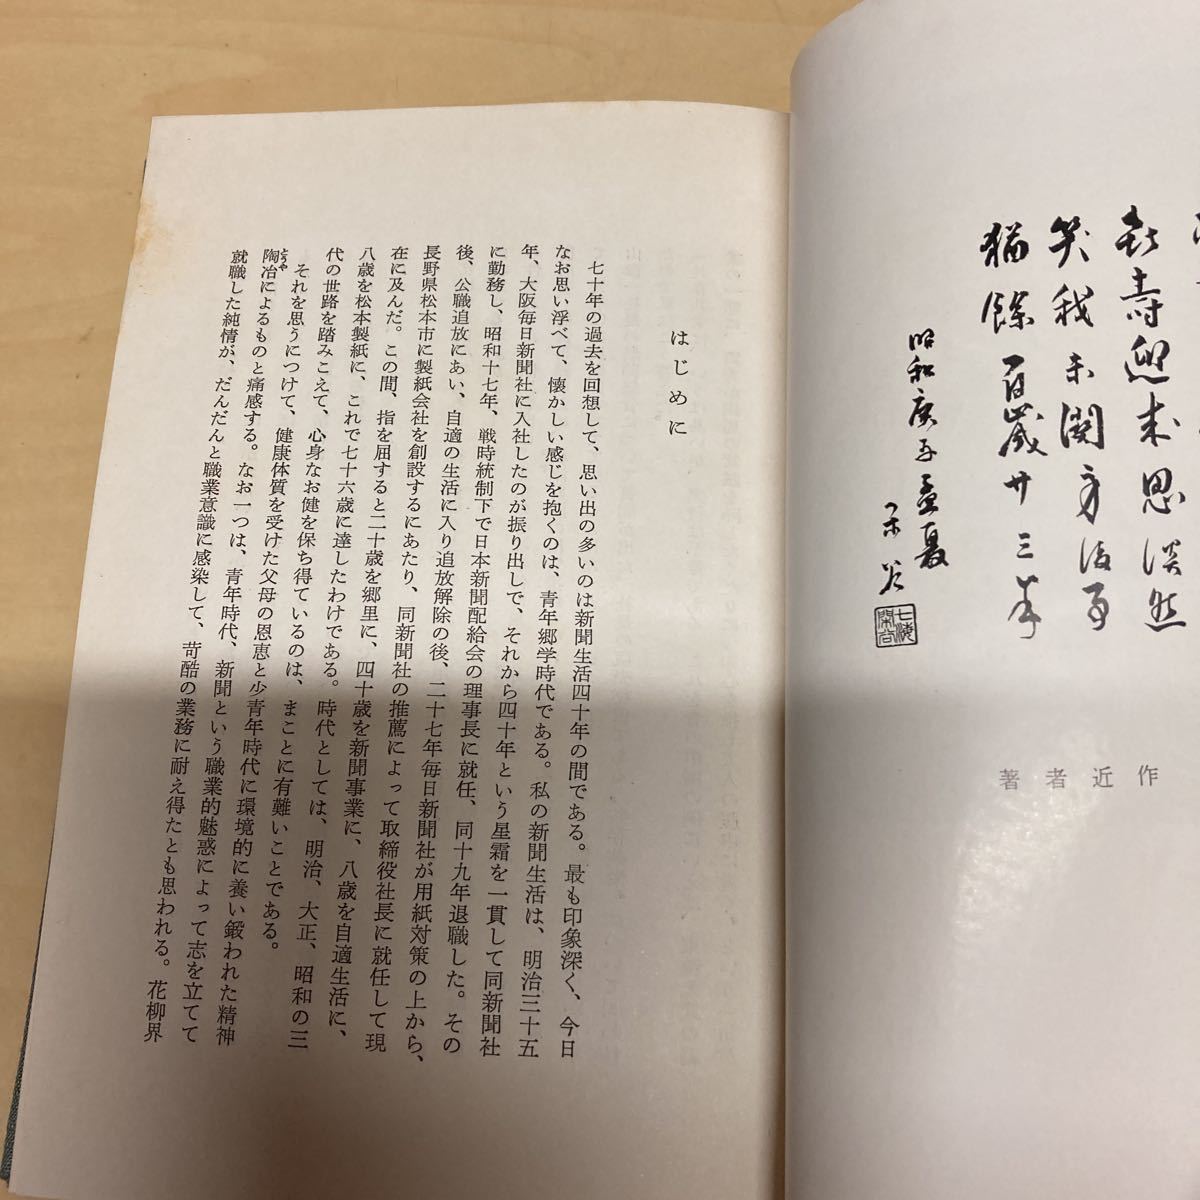 喜壽迎来思淡然
笑我未関身後事
猶餘百歳廿三年
昭和庚子孟夏
著者近作
はじめに
七十年の過去を回想して、思い出の多いのは新聞生活四十年の間である。最も印象深く、今日
なお思い浮べて、懐かしい感じを抱くのは、青年郷学時代である。私の新聞生活は、明治三十五
年、大阪毎日新聞社に入社したのが振り出しで、それから四十年という星霜を一貫して同新聞社
に勤務し、昭和十七年、戦時統制下で日本新聞配給会の理事長に就任、同十九年退職した。その
後、公職追放にあい、自適の生活に入り追放解除の後、二十七年毎日新聞社が用紙対策の上から、
長野県松本市に製紙会社を創設するにあたり、同新聞社の推薦によって取締役社長に就任して現
在に及んだ。この間、指を屈すると二十歳を郷里に、四十歳を新聞事業に、八歳を自適生活に、
八歳を松本製紙に、これで七十六歳に達したわけである。時代としては、明治、大正、昭和の三
代の世路を踏みこえて、心身なお健を保ち得ているのは、まことに有難いことである。
それを思うにつけて、健康体質を受けた父母の恩恵と少青年時代に環境的に養い鍛われた精神
陶冶によるものと痛感する。なお一つは、青年時代、新聞という職業的魅惑によって志を立てて
就職した純情が、だんだんと職業意識に感染して、苛酷の業務に耐え得たとも思われる。花柳界